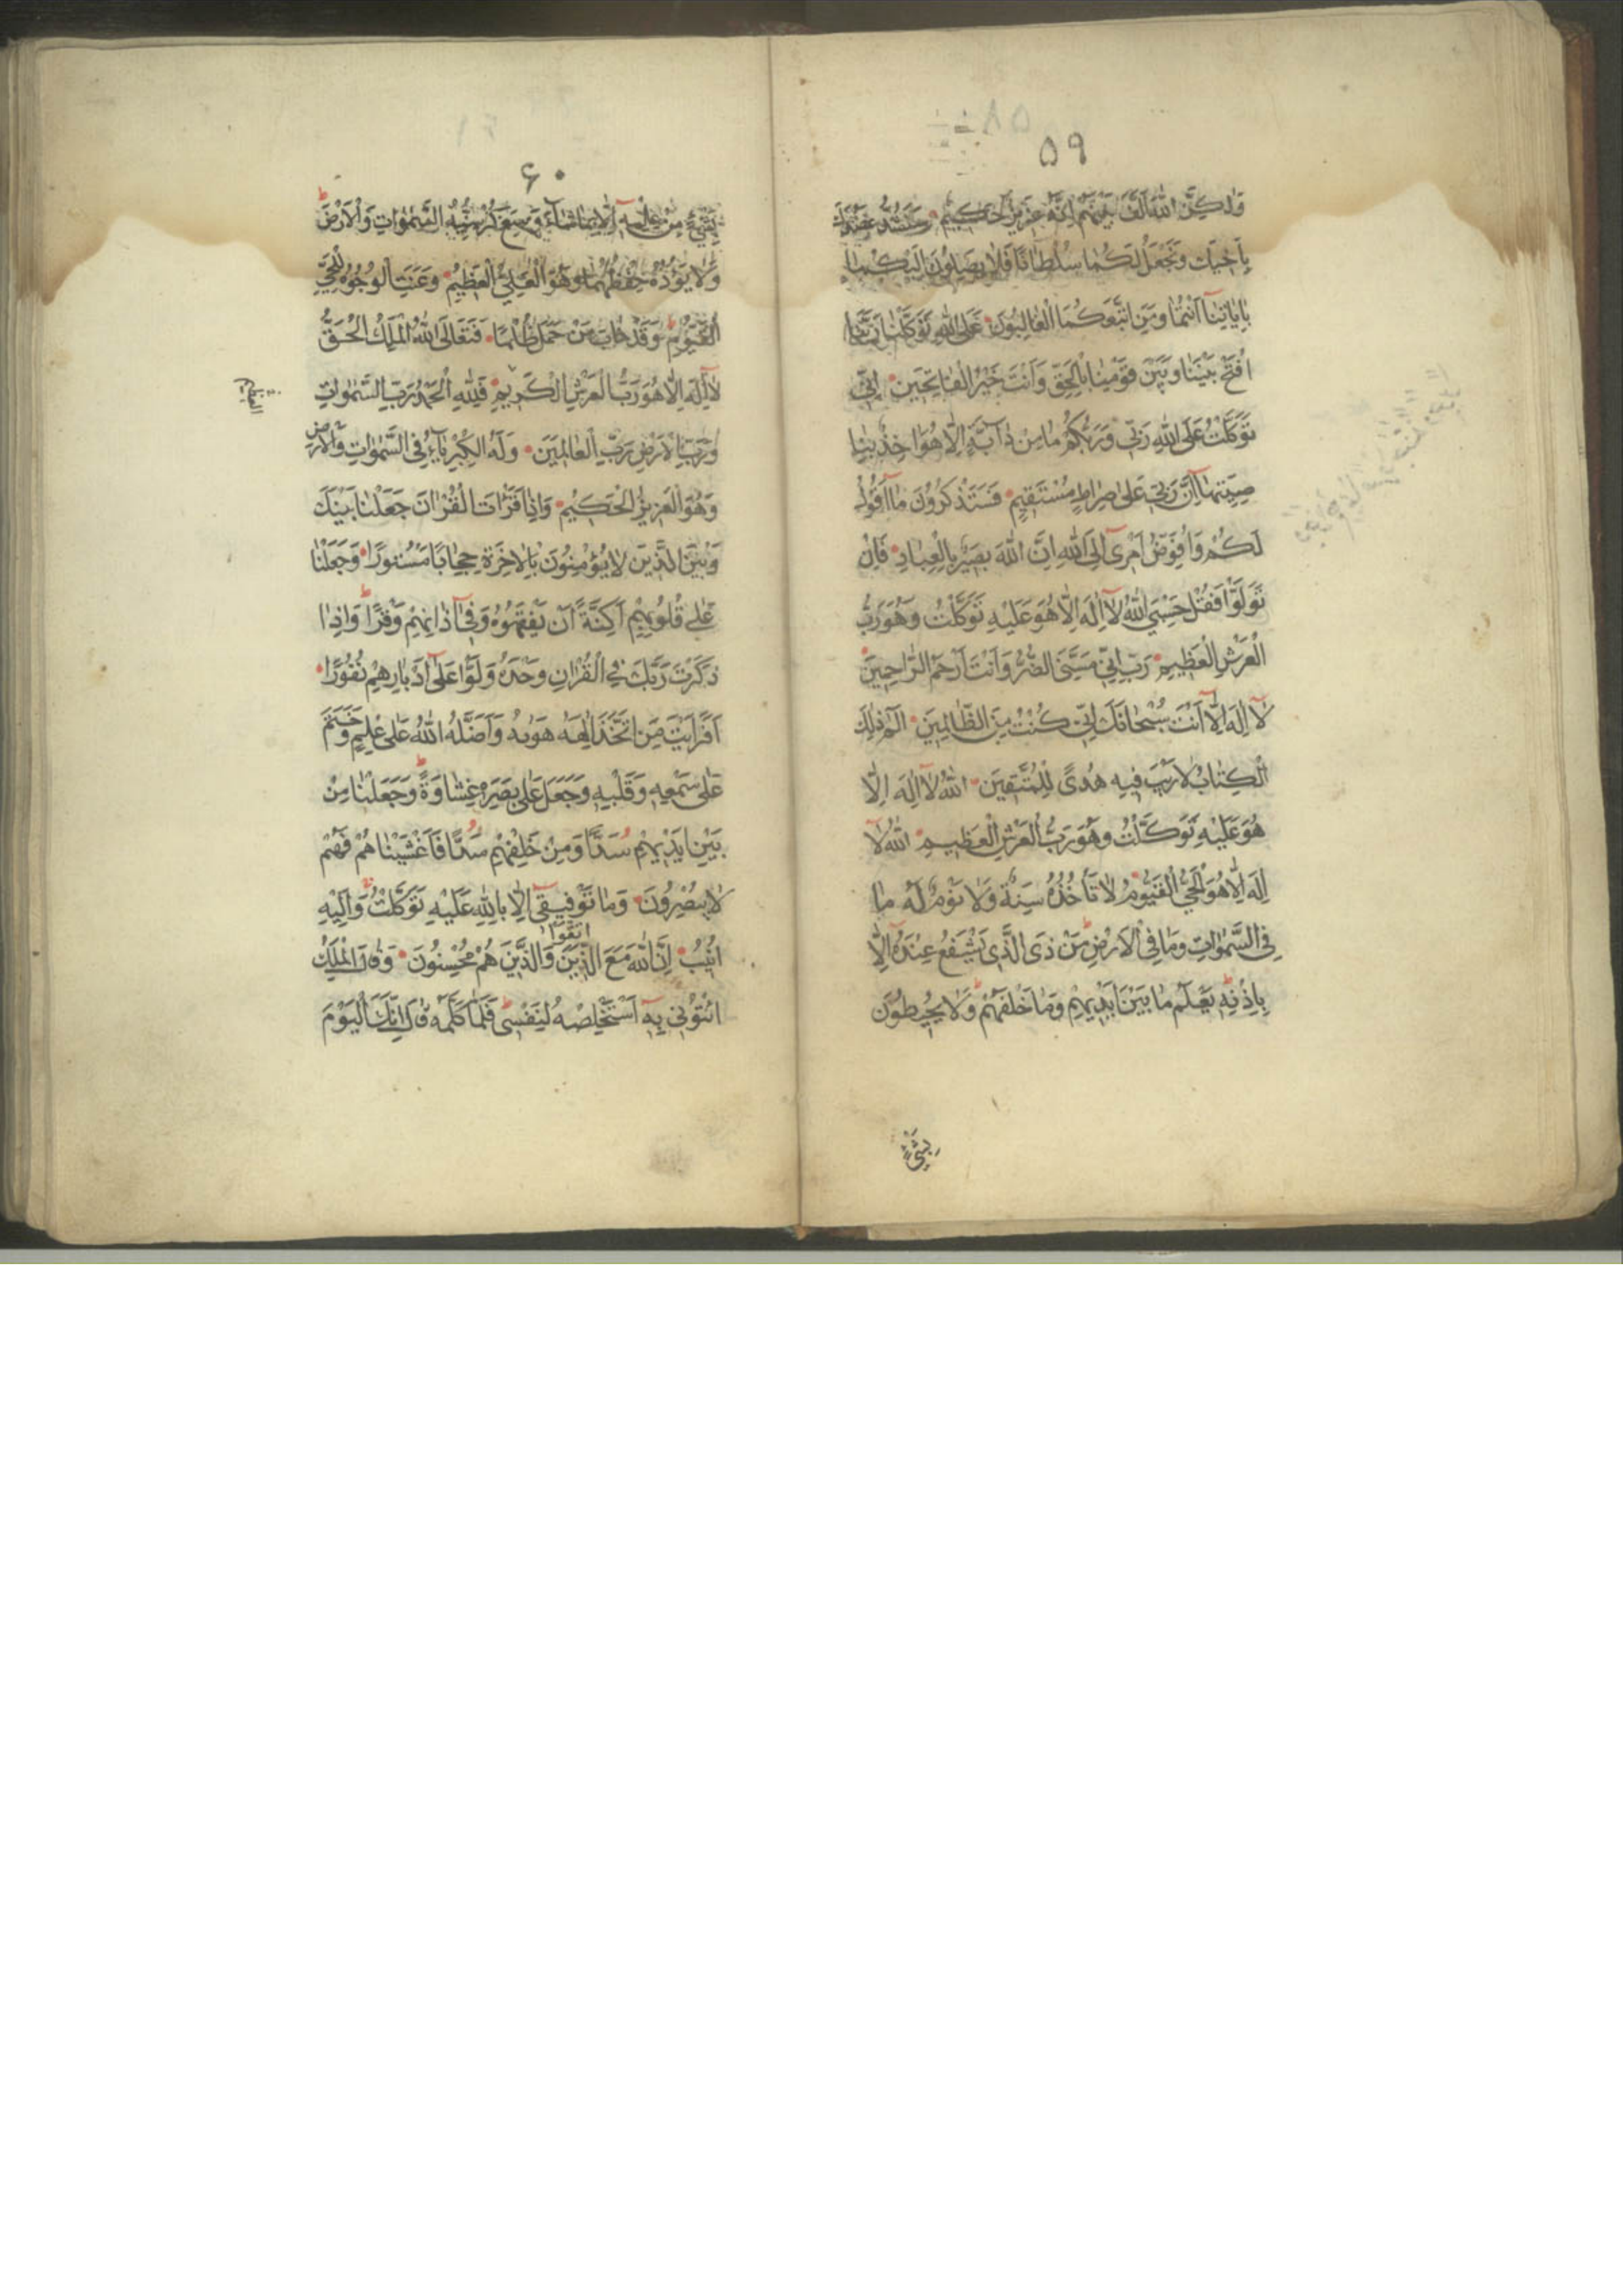 ٥٩
وَلٰكِنَّ اللّٰهَ اَلَّفَ بَيْنَهُمْ اِنَّهُ عَزِيزٌ حَكِيمٌ سَنَشُدُّ عَضُدَكَ
بِاَخِيكَ وَنَجْعَلُ لَكُمَا سُلْطَانًا فَلَا يَصِلُونَ اِلَيْكُمَا
بِاٰيَاتِنَا اَنْتُمَا وَمَنِ اتَّبَعَكُمَا الْغَالِبُونَ عَلَى اللّٰهِ تَوَكَّلْنَا رَبَّنَا
افْتَحْ بَيْنَنَا وَبَيْنَ قَوْمِنَا بِالْحَقِّ وَاَنْتَ خَيْرُ الْفَاتِحِينَ اِنِّي
تَوَكَّلْتُ عَلَى اللّٰهِ رَبِّي وَرَبِّكُمْ مَا مِنْ دَابَّةٍ اِلَّا هُوَ اٰخِذٌ بِنَا
صِيَتِهَا اِنَّ رَبِّي عَلٰى صِرَاطٍ مُسْتَقِيمٍ فَسَتَذْكُرُونَ مَا اَقُولُ
لَكُمْ وَاُفَوِّضُ اَمْرِي اِلَى اللّٰهِ اِنَّ اللّٰهَ بَصِيرٌ بِالْعِبَادِ فَاِنْ
تَوَلَّوْا فَقُلْ حَسْبِيَ اللّٰهُ لَا اِلٰهَ اِلَّا هُوَ عَلَيْهِ تَوَكَّلْتُ وَهُوَ رَبُّ
الْعَرْشِ الْعَظِيمِ رَبِّ اِنِّي مَسَّنِيَ الضُّرُّ وَاَنْتَ اَرْحَمُ الرَّاحِمِينَ
لَا اِلٰهَ اِلَّا اَنْتَ سُبْحَانَكَ اِنِّي كُنْتُ مِنَ الظَّالِمِينَ الٓمٓ ذٰلِكَ
الْكِتَابُ لَا رَيْبَ فِيهِ هُدًى لِلْمُتَّقِينَ اللّٰهُ لَا اِلٰهَ اِلَّا
هُوَ عَلَيْهِ تَوَكَّلْتُ وَهُوَ رَبُّ الْعَرْشِ الْعَظِيمِ اللّٰهُ لَا
اِلٰهَ اِلَّا هُوَ الْحَيُّ الْقَيُّومُ لَا تَأْخُذُهُ سِنَةٌ وَلَا نَوْمٌ لَهُ مَا
فِي السَّمٰوَاتِ وَمَا فِي الْاَرْضِ مَنْ ذَى الَّذِي يَشْفَعُ عِنْدَهُ اِلَّا
بِاِذْنِهِ يَعْلَمُ مَا بَيْنَ اَيْدِيهِمْ وَمَا خَلْفَهُمْ وَلَا يُحِيطُونَ
بِشَيْءٍ
٦٠
بِشَيْءٍ مِنْ عِلْمِهِ اِلَّا بِمَا شَاءَ وَسِعَ كُرْسِيُّهُ السَّمٰوَاتِ وَالْاَرْضَ
وَلَا يَؤُدُهُ حِفْظُهُمَا وَهُوَ الْعَلِيُّ الْعَظِيمُ وَعَنَتِ الْوُجُوهُ لِلْحَيِّ
الْقَيُّومِ وَقَدْ خَابَ مَنْ حَمَلَ ظُلْمًا فَتَعَالَى اللّٰهُ الْمَلِكُ الْحَقُّ
لَا اِلٰهَ اِلَّا هُوَ رَبُّ الْعَرْشِ الْكَرِيمِ فَلِلّٰهِ الْحَمْدُ رَبِّ السَّمٰوَاتِ
وَرَبِّ الْاَرْضِ رَبِّ الْعَالَمِينَ وَلَهُ الْكِبْرِيَاءُ فِي السَّمٰوَاتِ وَالْاَرْضِ
وَهُوَ الْعَزِيزُ الْحَكِيمُ وَاِذَا قَرَأْتَ الْقُرْاٰنَ جَعَلْنَا بَيْنَكَ
وَبَيْنَ الَّذِينَ لَا يُؤْمِنُونَ بِالْاٰخِرَةِ حِجَابًا مَسْتُورًا وَجَعَلْنَا
عَلٰى قُلُوبِهِمْ اَكِنَّةً اَنْ يَفْقَهُوهُ وَفِي اٰذَانِهِمْ وَقْرًا وَاِذَا
ذَكَرْتَ رَبَّكَ فِي الْقُرْاٰنِ وَحْدَهُ وَلَّوْا عَلٰى اَدْبَارِهِمْ نُفُورًا
اَفَرَاَيْتَ مَنِ اتَّخَذَ اِلٰهَهُ هَوٰيهُ وَاَضَلَّهُ اللّٰهُ عَلٰى عِلْمٍ وَخَتَمَ
عَلٰى سَمْعِهِ وَقَلْبِهِ وَجَعَلَ عَلٰى بَصَرِهِ غِشَاوَةً وَجَعَلْنَا مِنْ
بَيْنِ اَيْدِيهِمْ سَدًّا وَمِنْ خَلْفِهِمْ سَدًّا فَاَغْشَيْنَاهُمْ فَهُمْ
لَا يُبْصِرُونَ وَمَا تَوْفِيقِي اِلَّا بِاللّٰهِ عَلَيْهِ تَوَكَّلْتُ وَاِلَيْهِ
اُنِيبُ اِنَّ اللّٰهَ مَعَ الَّذِينَ اتَّقَوْا وَالَّذِينَ هُمْ مُحْسِنُونَ وَقَالَ الْمَلِكُ
ائْتُونِي بِهِ اَسْتَخْلِصْهُ لِنَفْسِي فَلَمَّا كَلَّمَهُ قَالَ اِنَّكَ الْيَوْمَ